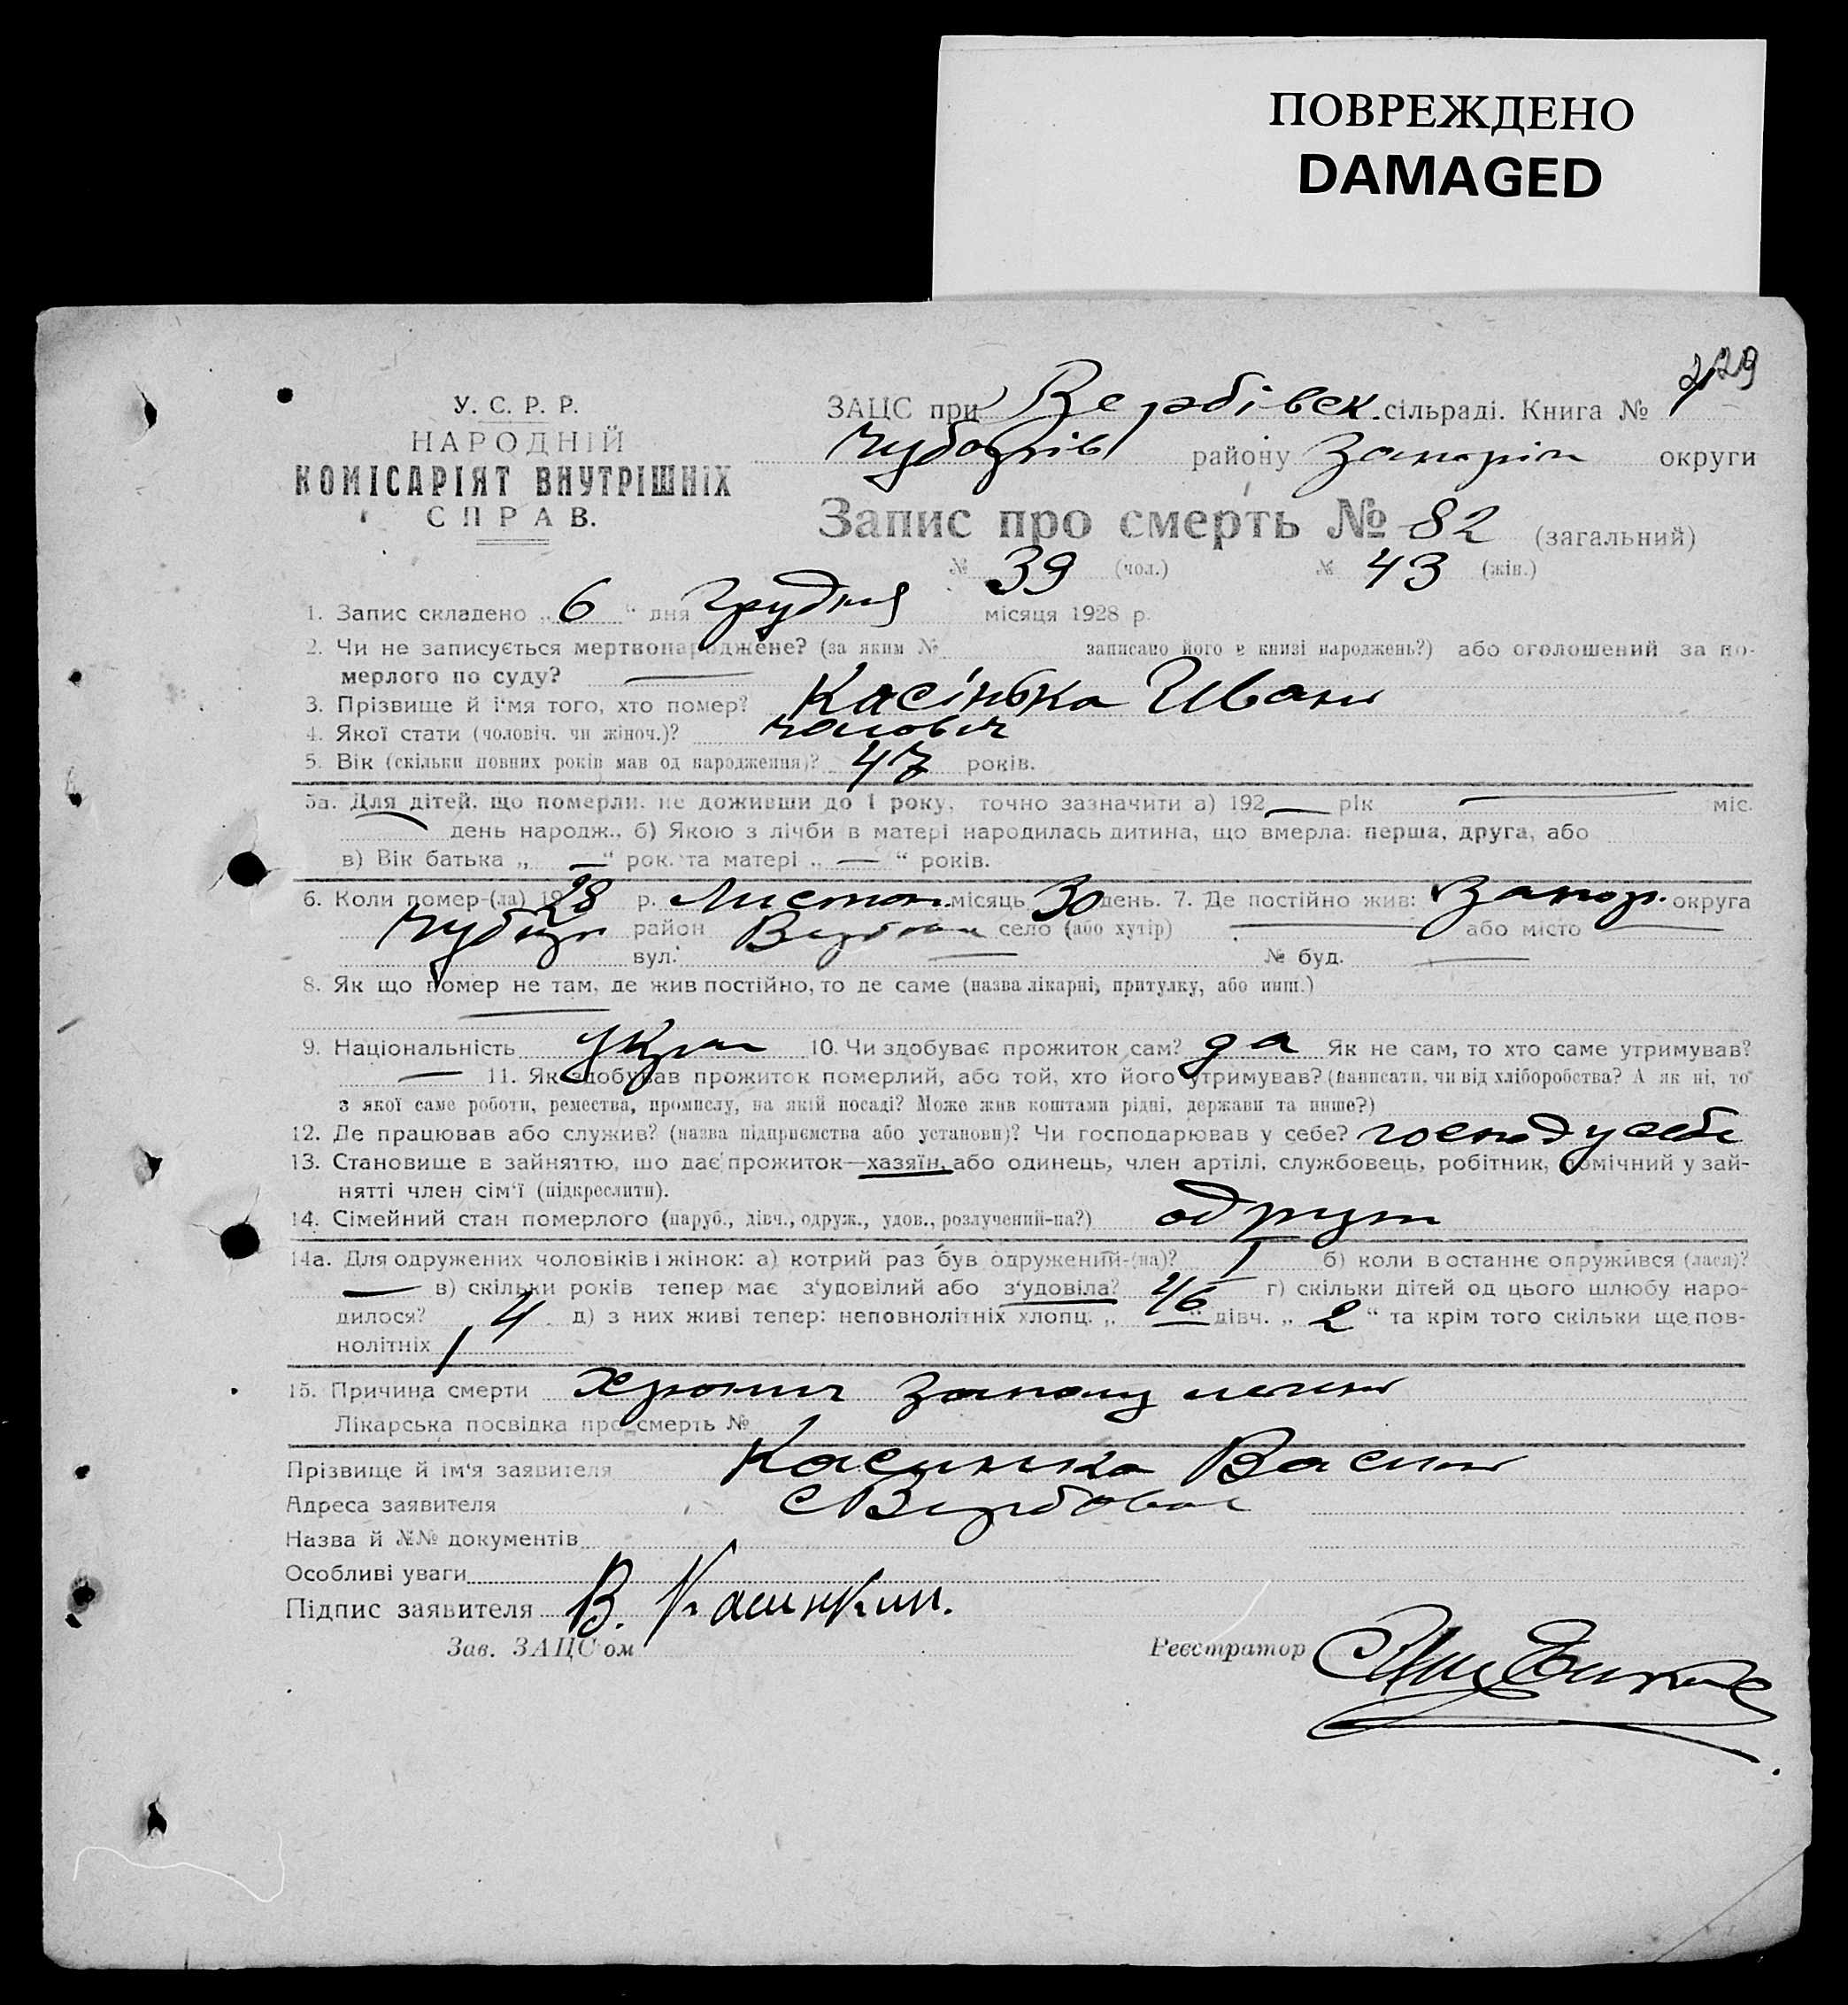 ПОВРЕЖДЕНО
DAMAGED
129
У. С. Р. Р.
НАРОДНІЙ
КОМІСАРІЯТ ВНУТРІШНІХ
СПРАВ.
ЗАЦС при Вербівек. сільраді. Книга №
району Запоріж округи
Запис про смерть № 82 (загальний)
№ 39 (чол.) № 43 (жін.)
1. Запис складено „ 6 “ дня Грудня місяця 1928 р.
2. Чи не записується мертвонароджене? (за яким № записано його в книзі народжень?) або оголошений за по-
мерлого по суду? —
3. Прізвище й і'мя того, хто помер? Касінька Иван
4. Якої стати (чоловіч. чи жіноч.)? чоловіч
5. Вік (скільки повних років мав од народження)? 47 років.
5а. Для дітей, що померли, не доживши до 1 року, точно зазначити а) 192 — рік — міс.
день народж., б) Якою з лічби в матері народилась дитина, що вмерла: перша, друга, або
в) Вік батька „ — “ рок. та матері „ — “ років.
6. Коли помер-(ла) 1928 р. Листоп. місяць 30 день. 7. Де постійно жив: Запор. округа
район село (або хутір) — або місто —
вул. — № буд. —
8. Як що помер не там, де жив постійно, то де саме (назва лікарні, притулку, або инш.)
—
9. Національність Укра 10. Чи здобуває прожиток сам? да Як не сам, то хто саме утримував?
— 11. Як здобував прожиток померлий, або той, хто його утримував? (написати, чи від хліборобства? А як ні, то
з якої саме роботи, ремества, промислу, на якій посаді? Може жив коштами рідні, держави та инше?)
12. Де працював або служив? (назва підприємства або установи)? Чи господарював у себе? господ у себе
13. Становище в зайняттю, що дає прожиток—хазяїн, або одинець, член артілі, службовець, робітник, помічний у зай-
нятті член сім'ї (підкреслити).
14. Сімейний стан померлого (паруб., дівч., одруж., удов., розлучений-на?) одруж
14а. Для одружених чоловіків і жінок: а) котрий раз був одружений-(на)? 1 б) коли в останнє одружився (лася)?
— в) скільки років тепер має з'удовілий або з'удовіла? 46 г) скільки дітей од цього шлюбу наро-
дилося? 4 д) з них живі тепер: неповнолітніх хлопц. „ — “ дівч. „ 2 “ та крім того скільки ще пов-
нолітніх 1
15. Причина смерти Хронич запал легень
Лікарська посвідка про смерть №
Прізвище й ім'я заявителя Касинька Васил
Адреса заявителя с Вербова
Назва й №№ документів
Особливі уваги
Підпис заявителя В. Касинкин.
Зав. ЗАЦС'ом Реєстратор